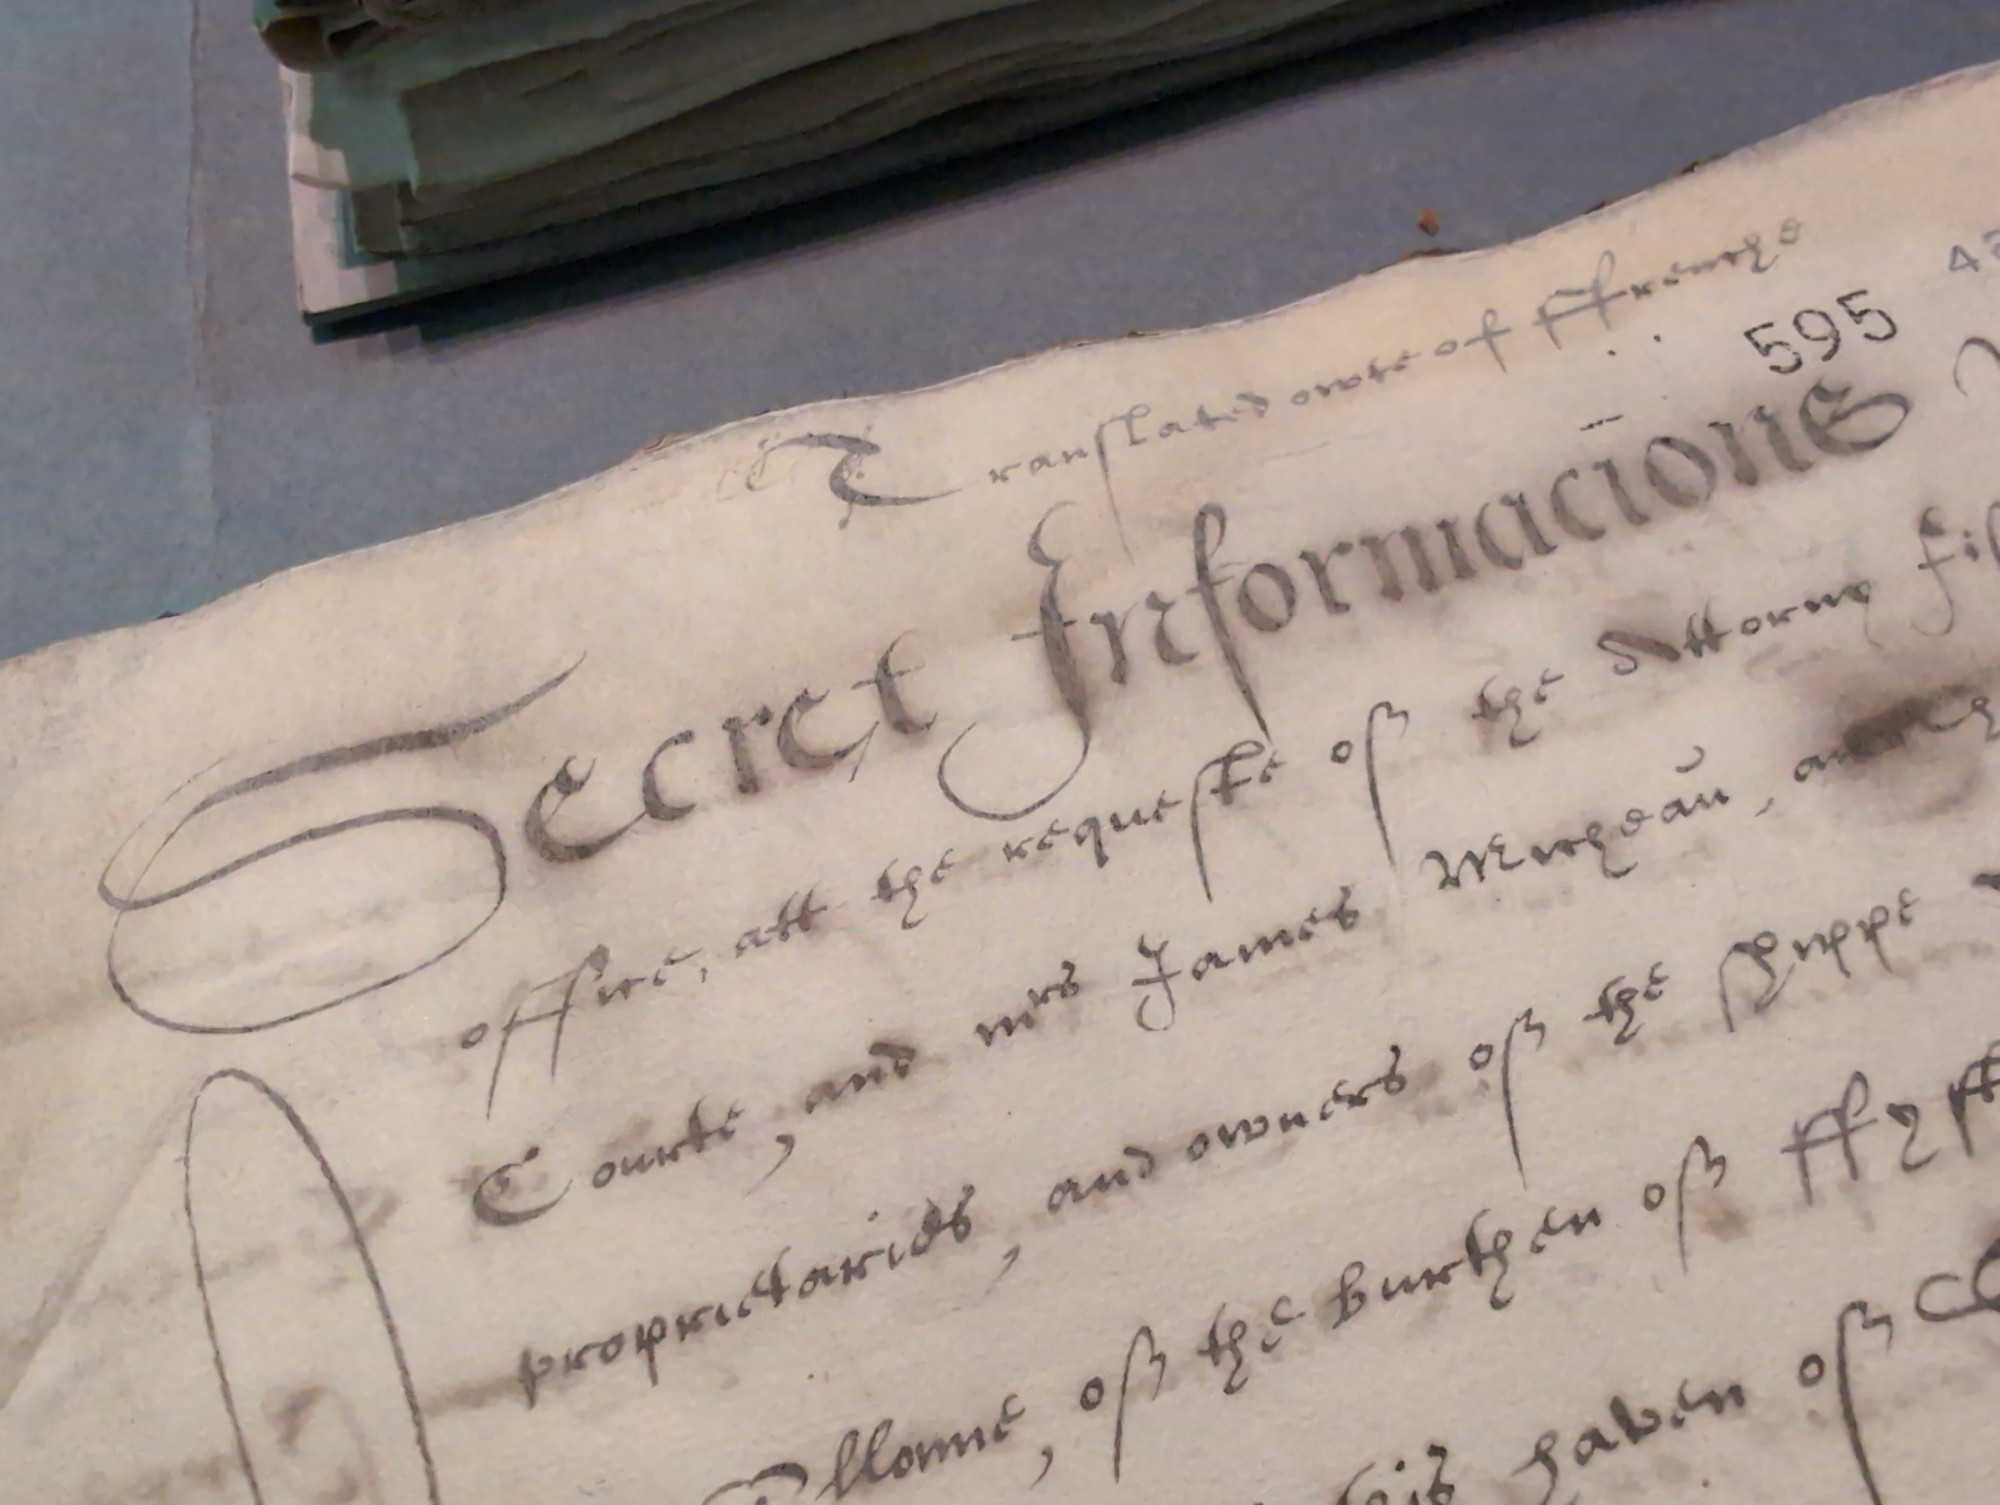 Translated owte of ffrenche
595 42
Secret Informacions
office, att the requeste of the Attorny fis
Courte, and mrs James Micheau,
proprietaries, and owners of the shippe
of the burthen of ffyft
haven of